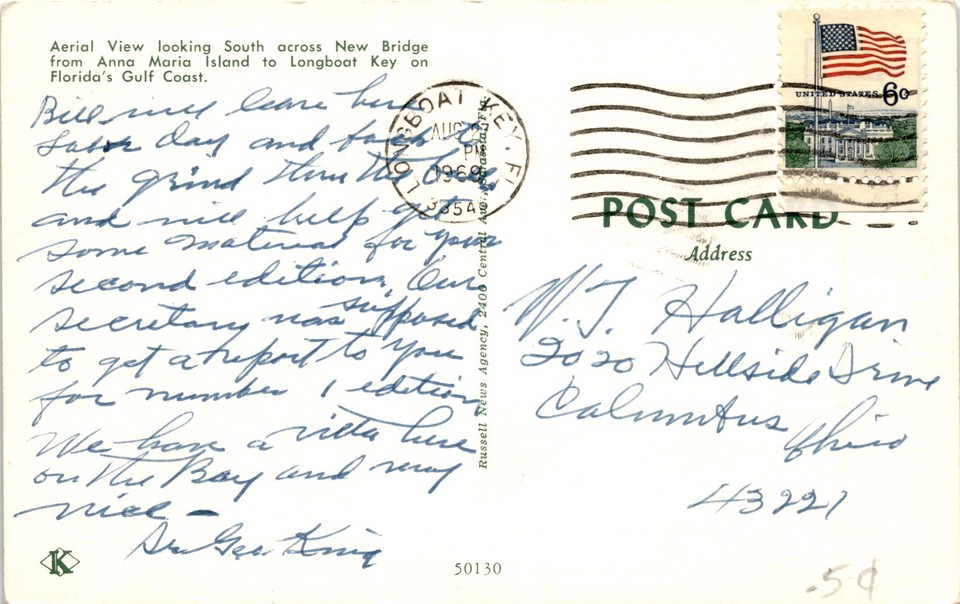 Aerial View looking South across New Bridge
from Anna Maria Island to Longboat Key on
Florida's Gulf Coast.
Bill will leave here
Labor Day and back to
the grind thru the
and will help get
some material for your
second edition. Our
secretary was supposed
to get a report to you
for number 1 edition
We have a villa here
on the Bay and very
nice —
Geo King
K
50130
Russell News Agency, 2400 Central Ave., Sarasota, Fla.
LONGBOAT KEY, FL
AUG
PM
1969
3354
UNITED STATES 6c
POST CARD
Address
W. J. Halligan
2020 Hillside Drive
Columbus
Ohio
43221
.5¢